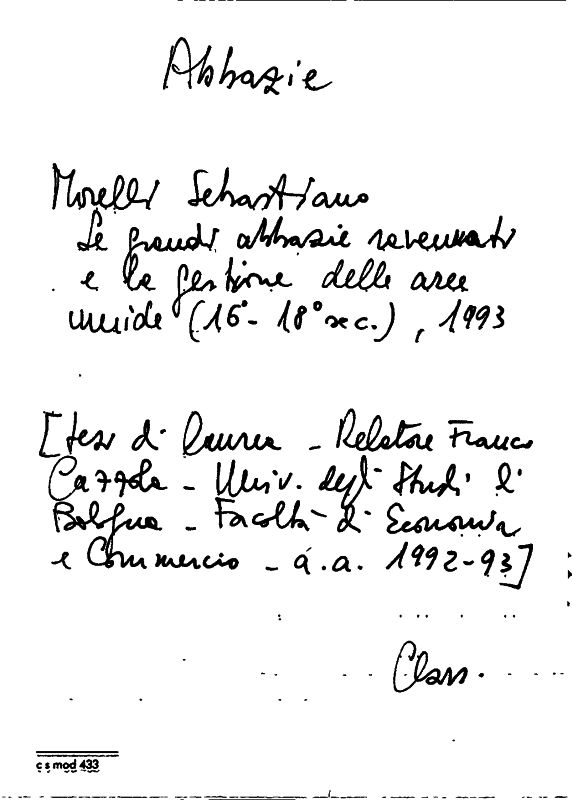 Abbazie
Morelli Sebastiano
Le grandi abbazie ravennati
e la gestione delle aree
umide (16°- 18° sec.), 1993
[tesi di laurea - Relatore Franco
Cazzola - Univ. degli Studi di
Bologna - Facoltà di Economia
e Commercio - a.a. 1992-93]
Class.
c s mod 433